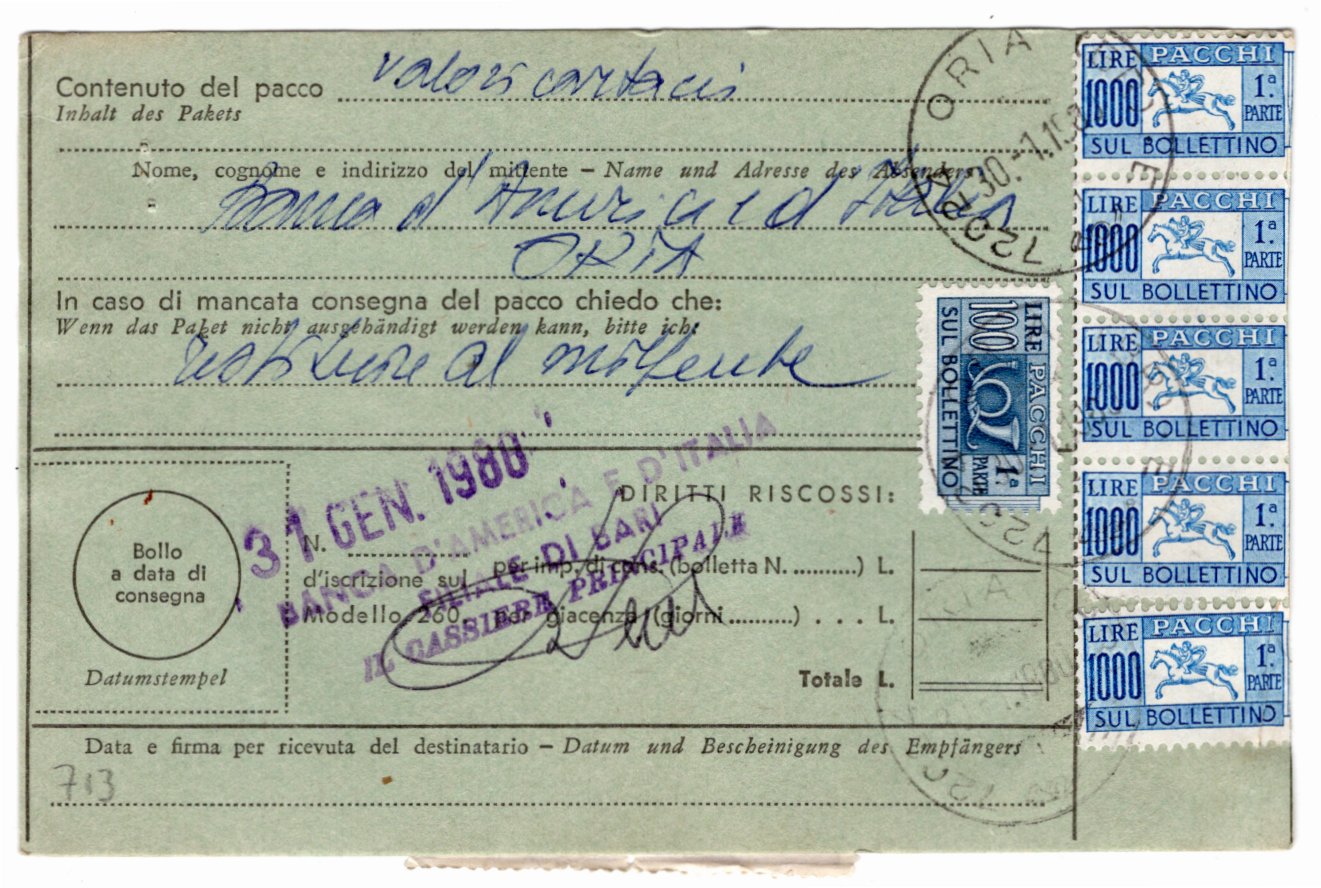 Contenuto del pacco valori cartacei
Inhalt des Pakets
Nome, cognome e indirizzo del mittente – Name und Adresse des Absenders
Banca d'America e d'Italia
ORIA
In caso di mancata consegna del pacco chiedo che:
Wenn das Paket nicht ausgehändigt werden kann, bitte ich:
restituire al mittente
31 GEN. 1980
BANCA D'AMERICA E D'ITALIA
FILIALE DI BARI
IL CASSIERE PRINCIPALE
DIRITTI RISCOSSI:
N.
d'iscrizione sul per imp. di cons. (bolletta N. ) L.
Modello 260. per giacenza (giorni ) . . . L.
Totale L.
Bollo
a data di
consegna
Datumstempel
Data e firma per ricevuta del destinatario – Datum und Bescheinigung des Empfängers
713
LIRE PACCHI
1000 1ª PARTE
SUL BOLLETTINO
LIRE PACCHI
1000 1ª PARTE
SUL BOLLETTINO
LIRE PACCHI
1000 1ª PARTE
SUL BOLLETTINO
LIRE PACCHI
1000 1ª PARTE
SUL BOLLETTINO
LIRE PACCHI
1000 1ª PARTE
SUL BOLLETTINO
LIRE PACCHI
100 1ª PARTE
SUL BOLLETTINO
ORIA
30.-1.19